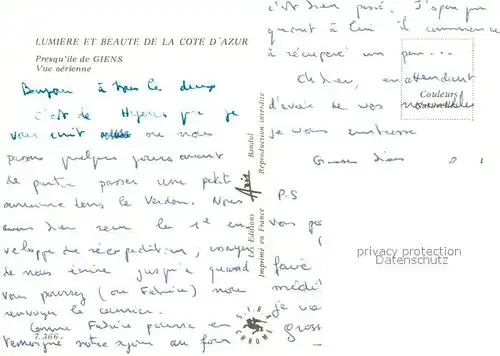 LUMIERE ET BEAUTE DE LA COTE D'AZUR
Presqu'île de GIENS
Vue aérienne
Bonjour à tous les deux
C'est de Hyères que je
vous écrit où nous
passons quelques jours avant
de partir passer une petite
semaine dans le Verdon. Nous
avons bien reçu la 1e en
veloppe de réexpédition,
de nous écrire jusqu'à quand
vous pourrez (ou Fabrice) nous
renvoyer le courrier.
Comme Fabrice pourra en
témoigner notre séjour au
7.366
Les Editions Aris Bandol
Imprimé en France Reproduction interdite
c'est bien passé. J'espère que
quant à lui il commence
à récupéré un peu...
Eh bien, en attendant
d'avoir de vos nouvelles
je vous embrasse
Couleurs
Naturelles
P.S
vous
privacy protection
Datenschutz
je
gross